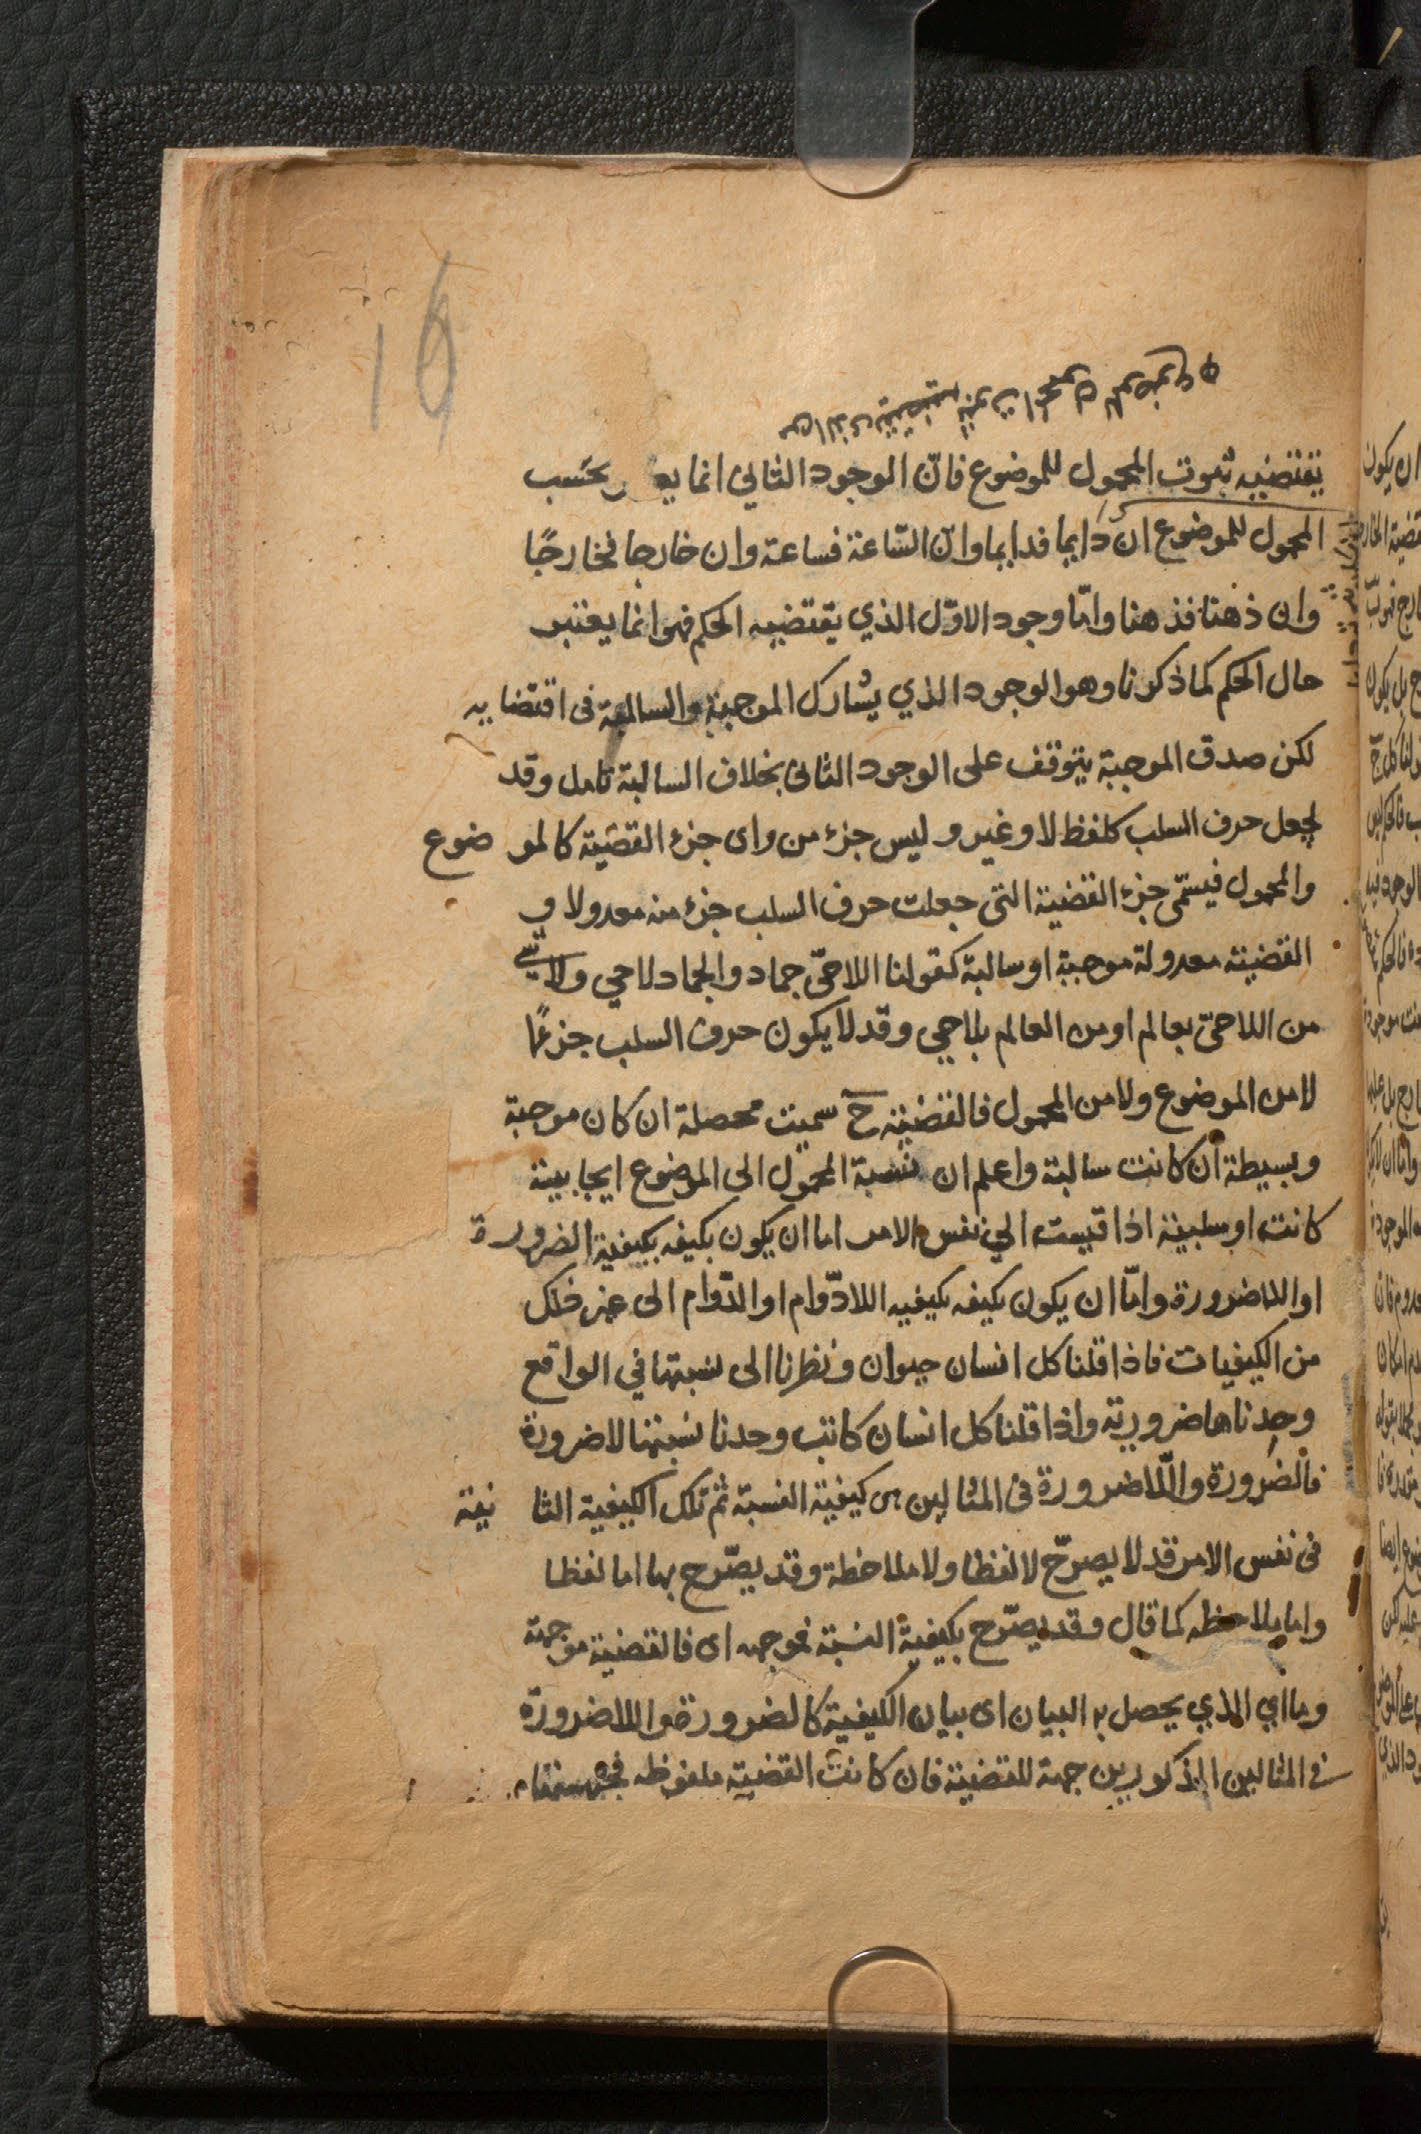 16
يقتضيه ثبوت المحمول للموضوع فانّ الوجود الثاني انما بحسب
المحمول للموضوع ان دايما فدايما وان السّاعة فساعة وان خارجا فخارجًا
وان ذهنا فذهنا وامّا وجود الاوّل الذي يقتضيه الحكم فهو انما يعتبر
حال الحكم كما ذكرنا وهو الوجود الذي يشارك الموجبة والسالبة فى اقتضايه
لكن صدق الموجبة يتوقف على الوجود الثانى بخلاف السالبة تامل وقد
يجعل حرف السلب كلفظ لا وغير وليس جزء من واى جزء القضية كالموضوع
والمحمول فيسمّى جزء القضية التى جعلت حرف السلب جزء منه معدولا و
القضية معدولة موجبة او سالبة كقولنا اللاحىّ جماد والجماد لاحي ولا شئ
من اللاحىّ بعالم او من العالم بلاحي وقد لا يكون حرف السلب جزءًا
لا من الموضوع ولا من المحمول فالقضية ح سميت محصلة ان كان موجبة
وبسيطة ان كانت سالبة واعلم ان نسبة المحمول الى الموضوع ايجابية
كانت او سلبية اذا قيست الي نفس الامر اما ان يكون بكيفه بكيفية الضرورة
او اللاضرورة وامّا ان يكون بكيفه بكيفيه اللادّوام او الدّوام الى غير ذلك
من الكيفيات فاذا قلنا كل انسان حيوان ونظرنا الى نسبتها في الواقع
وجدناها ضرورية واذا قلنا كل انسان كاتب وجدنا نسبتها لا ضرورة
فالضرورة واللّاضرورة فى المثالين هى كيفية النسبة ثم تلك الكيفية الثانية
فى نفس الامر قد لا يصرّح لا لفظا ولا ملاحظة وقد يصّرح بها اما لفظا
واما بملاحظه كما قال وقد يصّرح بكيفية النسبة فموجهه اى فالقضية موجهة
وما اي الذي يحصل به البيان اى بيان الكيفية كالضرورة واللاضرورة
فى المثالين المذكورين جهة للقضية فان كانت القضية ملفوظه